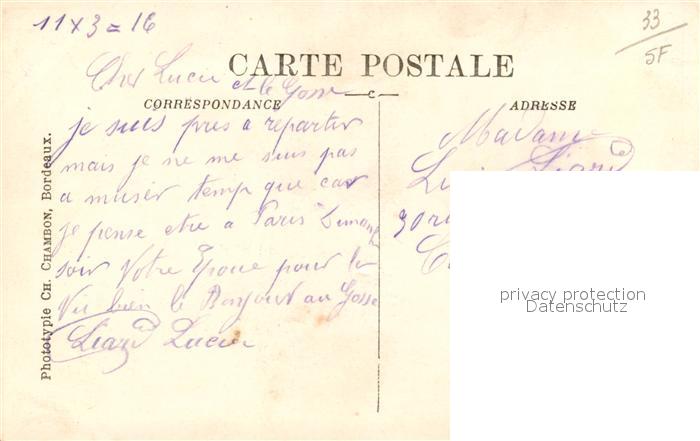 11 x 3 = 16
33
SF
CARTE POSTALE
CORRESPONDANCE
ADRESSE
Cher Lucie et le Gosse
je suis pres a repartir
mais je ne me suis pas
a muser temp que car
je pense etre a Paris Dimanche
soir Votre Epoue pour la
Vie bien le Bonjour au Gosse
Liard Lucien
Madame
Liard
30
Phototypie CH. CHAMBON, Bordeaux.
privacy protection
Datenschutz